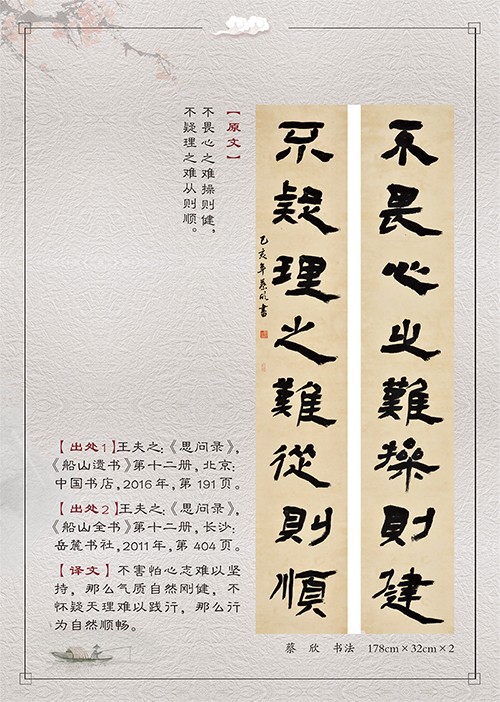 不畏心之難操則建
不疑理之難從則順
己亥年蔡欣書
【原文】
不畏心之难操则健，
不疑理之难从则顺。
【出处1】王夫之：《思问录》，
《船山遗书》第十二册，北京：
中国书店，2016年，第191页。
【出处2】王夫之：《思问录》，
《船山全书》第十二册，长沙：
岳麓书社，2011年，第404页。
【译文】不害怕心志难以坚
持，那么气质自然刚健，不
怀疑天理难以践行，那么行
为自然顺畅。
蔡 欣 书法 178cm×32cm×2